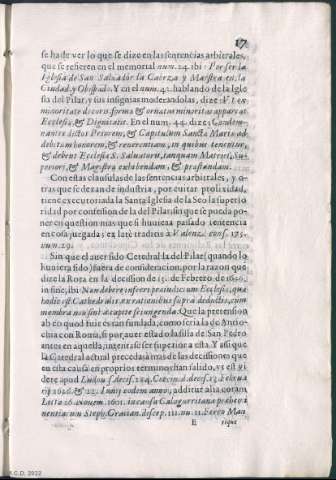 17
se ha de ver lo que se dize en las sentencias arbitrales,
que se refieren en el memorial num. 24. ibi: Por ser la
Iglesia de San Salvador la Cabeza y Maestra en la
Ciudad y Obispado. Y en el num. 42. hablando de la Igle
sia del Pilar, y sus insignias moderandolas, dize: Vt ex
minoritate decoris forma & ornatus minoritas appareat
Ecclesiæ, & Dignitatis. En el num. 44. dize: Condem-
namus dictos Priorem, & Capitulum Sanctæ Mariæ ad
debitum honorem, & reuerentiam, in quibus tenentur,
& debent Ecclesiæ S. Saluatoris, tanquam Matrici, Su-
periori, & Magistræ exhibendam, & præstandam.
Con estas clausulas de las sentencias arbitrales, y o-
tras que se dexan de industria, por euitar prolixidad,
tiene executoriada la Santa Iglesia de la Seo la superio
ridad por confession de la del Pilar, sin que se pueda po-
ner en question mas que si huuiera passado sentencia
en cosa juzgada; ex latè traditis à Valenz. cons. 175.
num. 29.
Sin que el auer sido Catedral la del Pilar (quando lo
huuiera sido) fuera de consideracion, por la razon que
dize la Rota en la decision de 15. de Febrero, de 1656.
in fine, ibi: Non debere inferri præiudicium Ecclesiæ, quæ
hodie est Cathedralis ex rationibus suprà deductis, cum
membra non sint à capite seiungenda. Que la pretension
ab eo quod fuit es tan fundada, como seria la de Antio-
chia con Roma, si por auer estado la silla de San Pedro
antes en aquella, ingenta ser superior a esta. Y assi que
la Catedral actual preceda à mas de las decisiones que
en esta causa en proprios terminos han salido, vt est vi
dere apud
E
rique
A.C.D. 2922